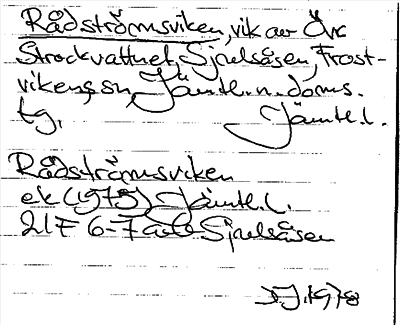 Rådströmsviken, vik av Övr
Stockvattnet, Sjoulsåsen, Frost-
vikens sn, Jämtl. n. doms.
tg, Jämtl. l.
Rådströmsviken
ek (1973) Jämtl. l.
21F 6-7 a Sjoulsåsen
1978